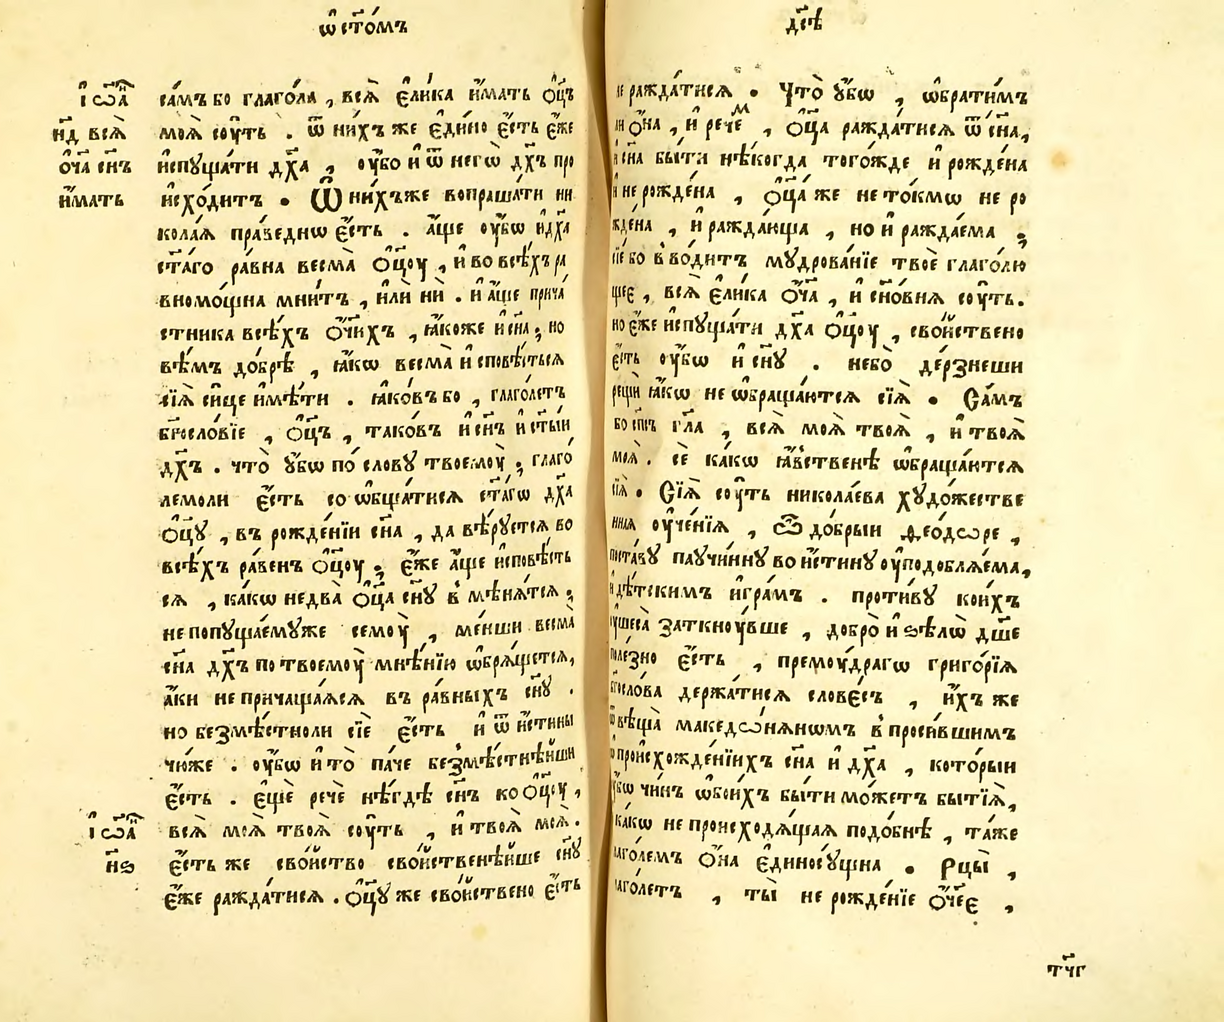 ѡ҆ ст҃о́мъ
і҆ѡа҃
н҃д всѧ̀
ѻч҃а сн҃ъ
и҆́мать
са́мъ бо глаго́лѧ , всѧ̀ є҆ли́ка и҆́мать ѻ҆ц҃ъ
моѧ̀ соу́ть . ѿ ни́хъ же є҆ди́но є҆́сть є҆́же
и҆спꙋща́ти дх҃а , оу҆́бо и҆ ѿ негѡ̀ дх҃ъ про
и҆схо́дитъ . Ѿ ни́хъже вопраша́ти ни
кола́ѧ пра́веднѡ є҆́сть . а҆́ще оу҆́бѡ и҆ дх҃а
ст҃а́го ра́вна весма̀ ѻ҆ц҃оу , и҆ во всѣ́хъ ра
вномо́щна мни́тъ , и҆лѝ нѝ . и҆ а҆́ще прича́
стника всѣ́хъ ѻ҆́ч҃ихъ , ꙗ҆́коже и҆ сн҃а ; но
вѣ́мъ до́брѣ , ꙗ҆́кѡ весма̀ и҆сповѣ́стьсѧ
сїѧ̀ си́це и҆мѣ́ти . ꙗ҆ко́въ бо , глаго́летъ
бг҃осло́вїе , ѻ҆ц҃ъ , тако́въ и҆ сн҃ъ и҆ ст҃ы́и
дх҃ъ . что̀ ᲂу҆́бѡ по сло́вꙋ твоемоу̀ , глаго́
лемоли є҆́сть со ѡ҆бща́тисѧ ст҃а́гѡ дх҃а
ѻ҆ц҃ꙋ , въ рожде́нїи сн҃а , да вѣ́рꙋетсѧ во
всѣ́хъ ра́венъ ѻ҆ц҃оу ; є҆́же а҆́ще и҆сповѣ́сть
сѧ , ка́кѡ не два̀ ѻ҆ц҃а сн҃ꙋ вмѣнѧ́тсѧ ;
не попꙋща́емꙋже семоу̀ , ме́нши весма̀
сн҃а дх҃ъ по твоемоу̀ мнѣ́нїю ѡ҆брѧ́щетсѧ,
а҆́ки не прича́щаѧсѧ въ ра́вныхъ сн҃ꙋ .
но безмѣ́стноли сїѐ є҆́сть и҆ ѿ и҆́стины
чю́же . оу҆́бѡ и҆ то̀ па́че безмѣ́стнѣиши
є҆́сть . є҆щѐ речѐ нѣ́гдѣ сн҃ъ ко ѻ҆ц҃оу ,
і҆ѡа҃
н҃ѕ
всѧ̀ моѧ̀ твоѧ̀ соу́ть , и҆ твоѧ̀ моѧ̀ .
є҆́сть же сво́йство сво́йственѣише сн҃ꙋ
є҆́же ражда́тисѧ . ѻ҆ц҃ꙋ же сво́йствено є҆́сть
дс҃ѣ
не ражда́тисѧ . Что̀ ᲂу҆́бѡ , ѡ҆брати́мъ
ли ѻ҆́на , и҆ рече́м , ѻ҆ц҃а ражда́тисѧ ѿ сн҃а,
и҆ сн҃а бы́ти нѣ́когда того́жде и҆ рожде́на
и҆ не рожде́на , ѻ҆ц҃а же не то́кмѡ не ро
жде́на , и҆ ражда́юща , но и҆ ражда́ема ;
сїе́ бо вво́дитъ мꙋдрова́нїе твоѐ глаго́лю
щее , всѧ̀ є҆ли́ка ѻч҃а , и҆ сн҃о́внѧ соу́ть.
но є҆́же и҆спꙋща́ти дх҃а ѻ҆ц҃оу , сво́йствено
є҆́сть оу҆́бѡ и҆ сн҃ꙋ . небо̀ де́рзнеши
рещѝ ꙗ҆́кѡ не ѡ҆браща́ютсѧ сїѧ̀ . Са́мъ
бо сп҃съ гл҃а , всѧ̀ моѧ̀ твоѧ̀ , и҆ твоѧ̀
моѧ̀ . сѐ ка́кѡ ꙗ҆́вственѣ ѡ҆браща́ютсѧ
сїѧ̀ . Сїѧ̀ соу́ть никола́ева хꙋдо́жестве
ннаѧ оу҆че́нїѧ , ѽ до́брыи ѳео́дѡре ,
поста́вꙋ паꙋчи́ннꙋ во и҆́стинꙋ оу҆подоблѧ́ема,
и҆ дѣ́тскимъ и҆гра́мъ . проти́вꙋ кои́хъ
оу҆шеса̀ заткноу́вше , добро̀ и҆ ѕѣлѡ̀ дш҃е
поле́зно є҆́сть , премоу́драгѡ григо́рїѧ
бг҃осло́ва держа́тисѧ слове́съ , и҆́хъ же
ѿвѣща̀ македѡнѧ́нѡмъ впроси́вшимъ
ѡ҆ происхожде́нїихъ сн҃а и҆ дх҃а , кото́рыи
ᲂу҆́бѡ чи́нъ ѡ҆бои́хъ бы́ти мо́жетъ бытїѧ̀,
ка́кѡ не происходѧ́щаѧ подо́бнѣ , та́же
глаго́лемъ ѻ҆́на є҆диносꙋ́щна . Рцы̀ ,
глаго́летъ , ты̀ не рожде́нїе ѻ҆ч҃ее ,
тч҃г